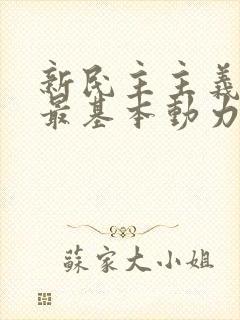 新民主主義
最基本動力
蘇家大小姐